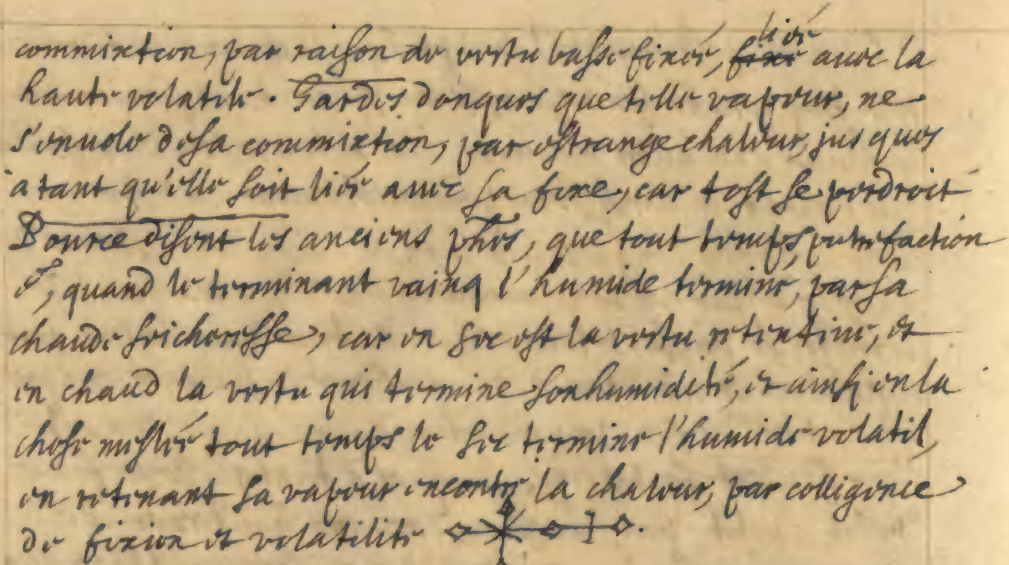 commixtion, par raison de vertu basse fixée, fixé liée auec la
haute volatile. Gardes donques que telle vapeur, ne
s'enuole de sa commixtion, par estrange chaleur, jusques
a tant qu'elle soit liée auec sa fixe, car tost se perdroit
Pource disent les anciens phes, que tout temps putrefaction
est, quand le terminant vainq l'humide terminé, par sa
chaude seicheresse, car en sec est la vertu retentiue, et
en chaud la vertu qui termine son humidité, et ainsi en la
chose meslée tout temps le sec termine l'humide volatil,
en retenant sa vapeur encontre la chaleur, par colligence
de fixion et volatilité